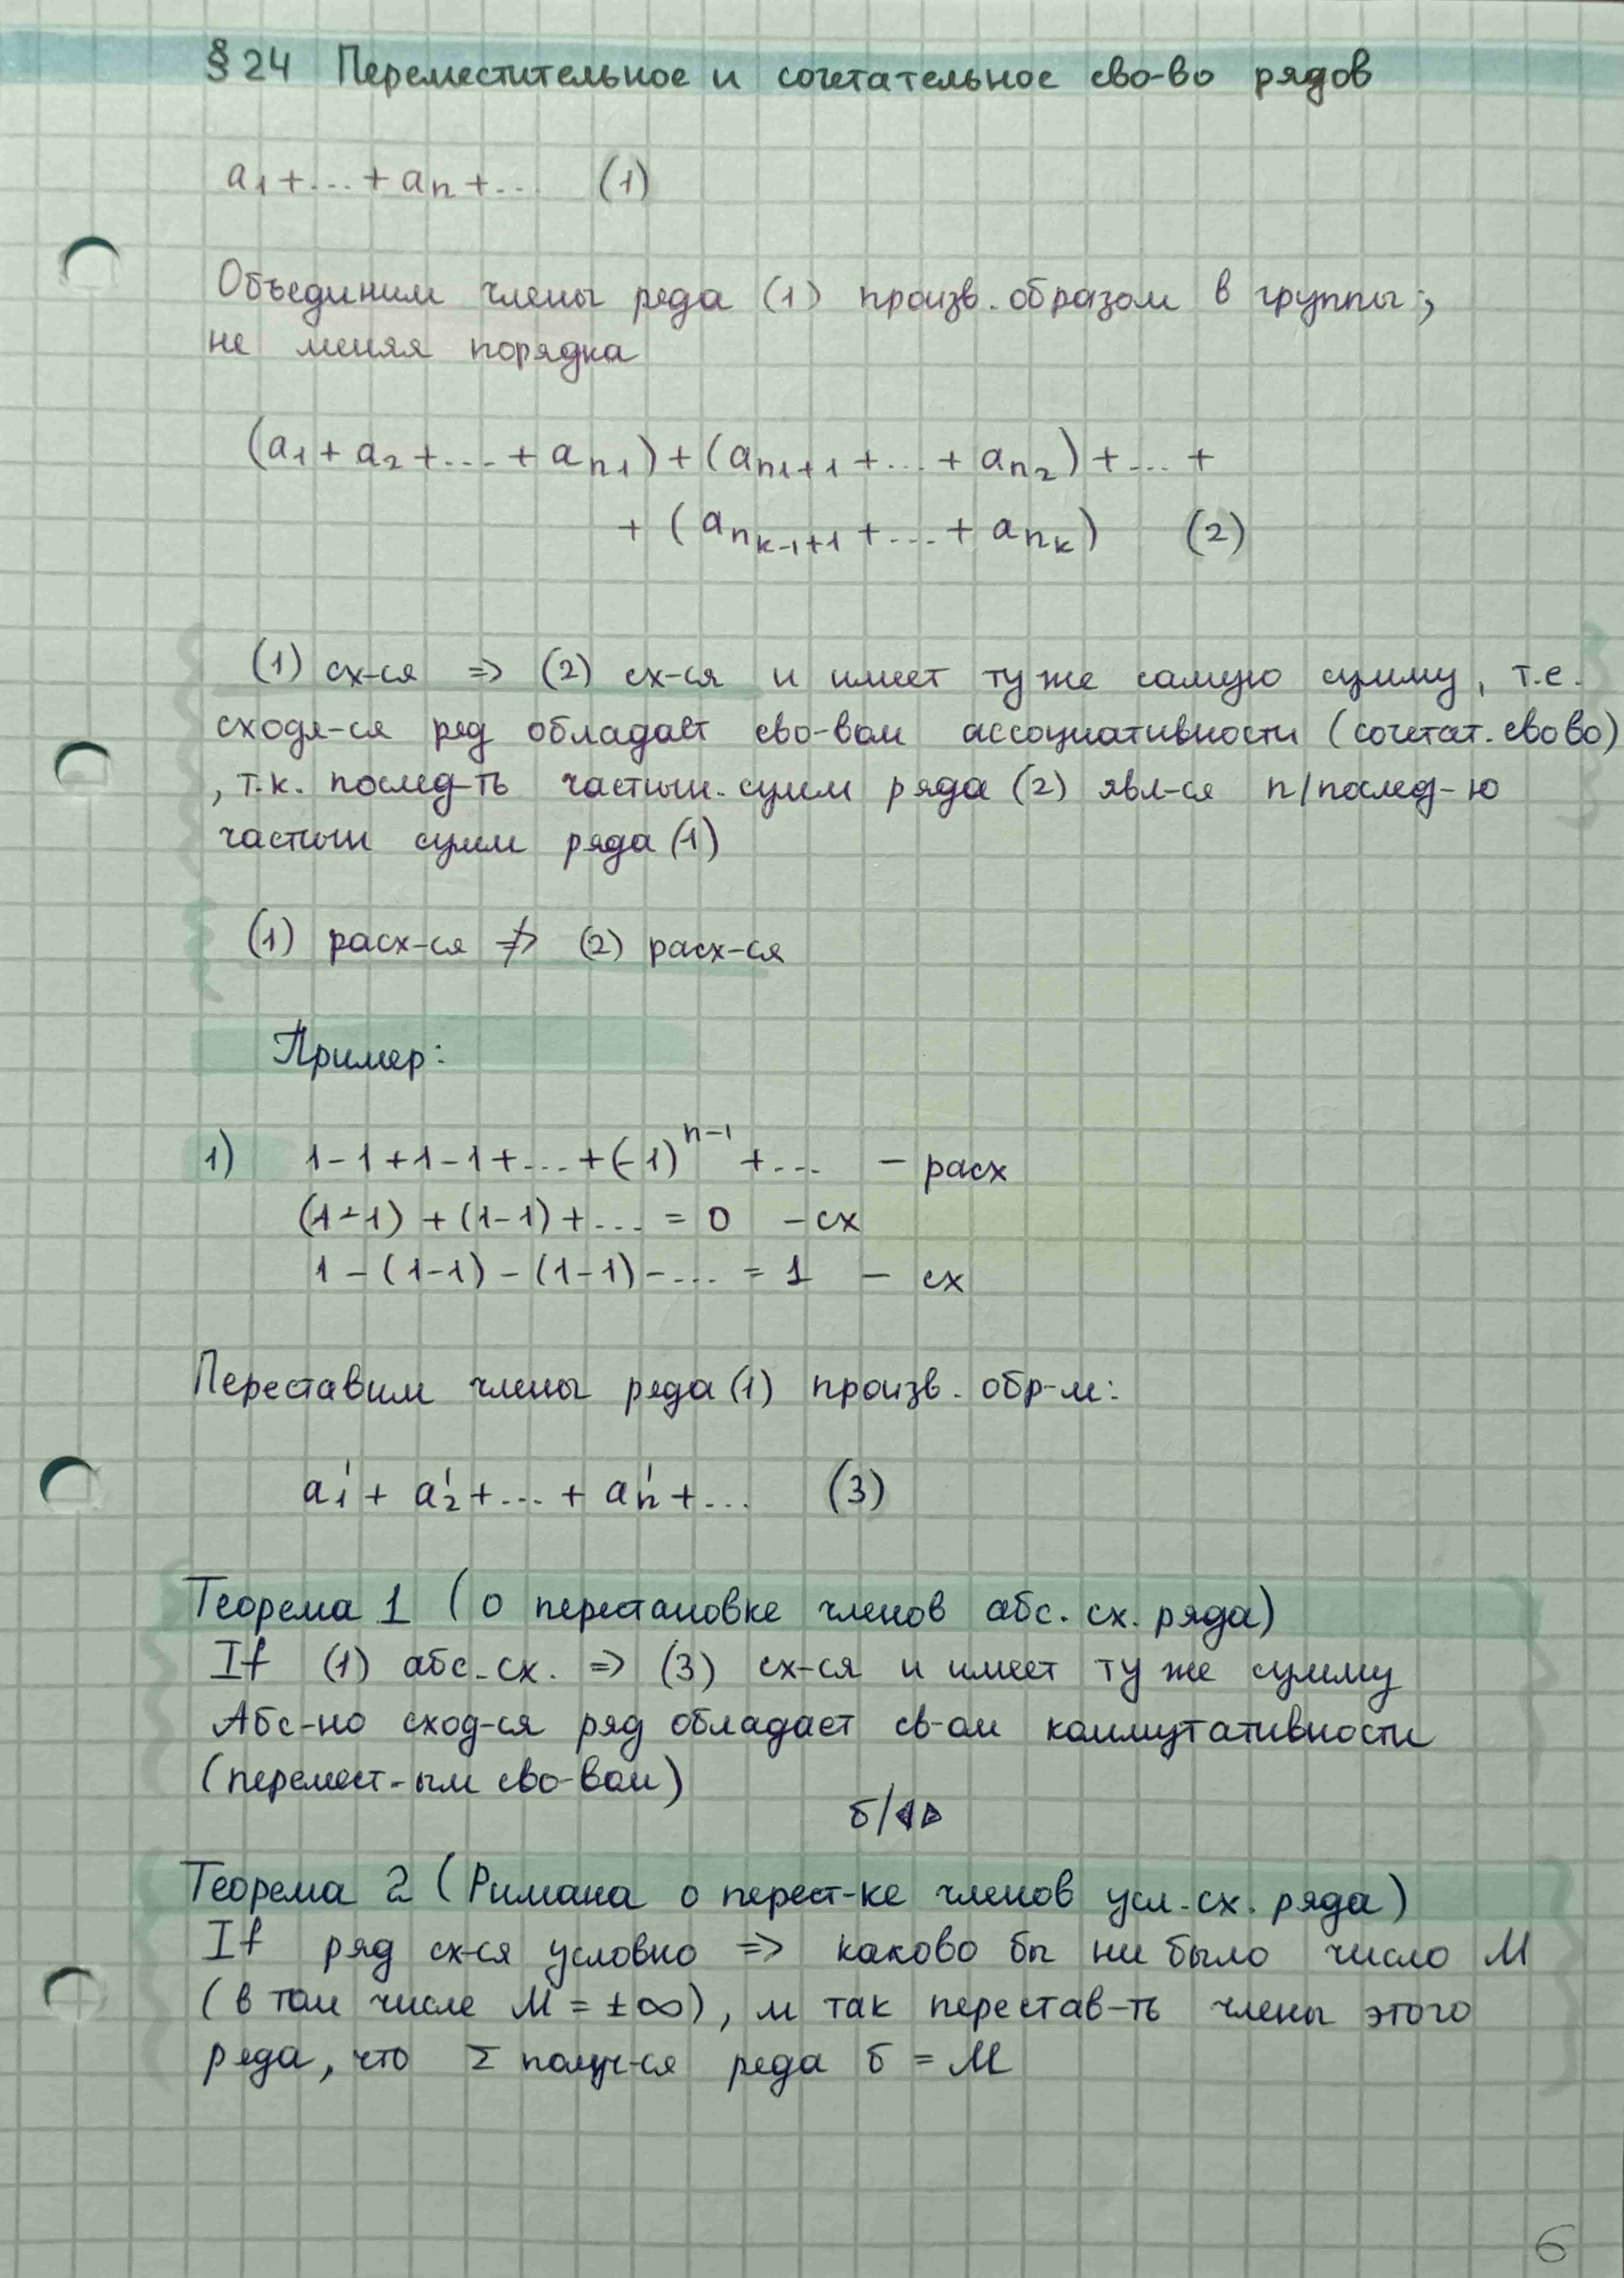 §24 Переместительное и сочетательное сво-во рядов
a₁+...+aₙ+... (1)
Объединим члены ряда (1) произв. образом в группы,
не меняя порядка
(a₁+a₂+...+a_{n₁})+(a_{n₁+1}+...+a_{n₂})+...+
+(a_{n_{k-1}+1}+...+a_{n_k}) (2)
(1) сх-ся => (2) сх-ся и имеет ту же самую сумму, т.е.
сходя-ся ряд обладает сво-вом ассоциативности (сочетат. свово)
, т.к. послед-ть частичн. сумм ряда (2) явл-ся п/послед-ю
частичн сумм ряда (1)
(1) расх-ся ≠> (2) расх-ся
Пример:
1) 1-1+1-1+...+(-1)^{n-1}+... - расх
(1-1)+(1-1)+... = 0 - сх
1-(1-1)-(1-1)-... = 1 - сх
Переставим члены ряда (1) произв. обр-м:
a₁'+a₂'+...+aₙ'+... (3)
Теорема 1 (о перестановке членов абс. сх. ряда)
If (1) абс. сх. => (3) сх-ся и имеет ту же сумму
Абс-но сход-ся ряд обладает св-ом коммутативности
(перемест-ым сво-вом)
б/◁▷
Теорема 2 (Римана о перест-ке членов усл. сх. ряда)
If ряд сх-ся условно => каково бы ни было число M
(в том числе M = ±∞), м так перестав-ть члены этого
ряда, что Σ получ-ся ряда б = M
6